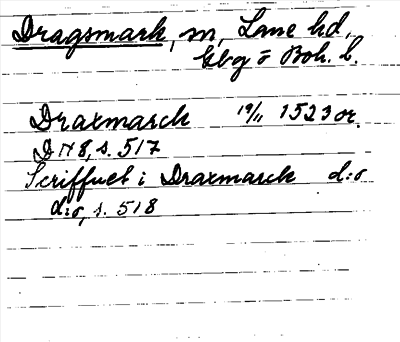 Dragsmark, sn, Lane hd,
Gbg o Boh. l.
Draxmarck 19/11 1523 or.
DN 8, s. 517
Scriffuet i Draxmarck d:o
d:o, s. 518